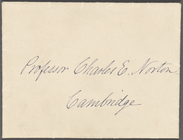 Professor Charles E. Norton
Cambridge